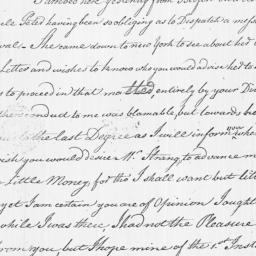 almost here yesterday from
Peter having been so obliging as to Dispatch a mess
wal. She came down to new York to see about her
Letter and wishes to know who you would advise her to
to proceed in that matter entirely by your Dire
conduct to me was blamable, but towards
to the last Degree as I will inform you when
wish you would desire Mr. Strang, to advance m
a Little Money, for tho' I shall want but litt
yet I am certain you are of Opinion I ought
while I was there, I had not the Pleasure
from you, but I hope mine of the 1st Inst